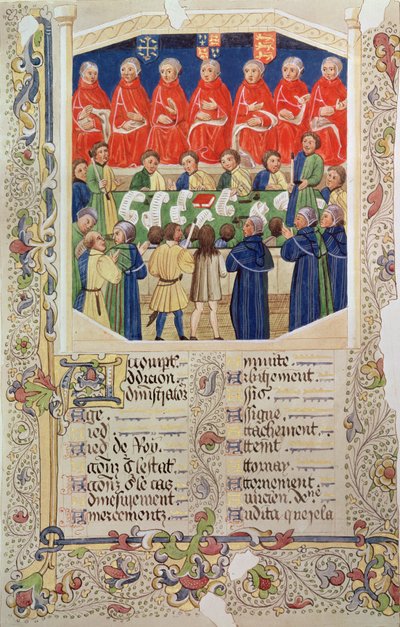 Accompt
Adcicion
Administrator
Age
Aied
Aied de Roy
Accõnz s̃ lestat
Accõnz s̃ le cas
Amesuyement
Amercementz
Annuite
Arbitgement
Assis
Assigne
Attachement
Atteint
Attornay
Attornement
Auncien deme
Audita Querela